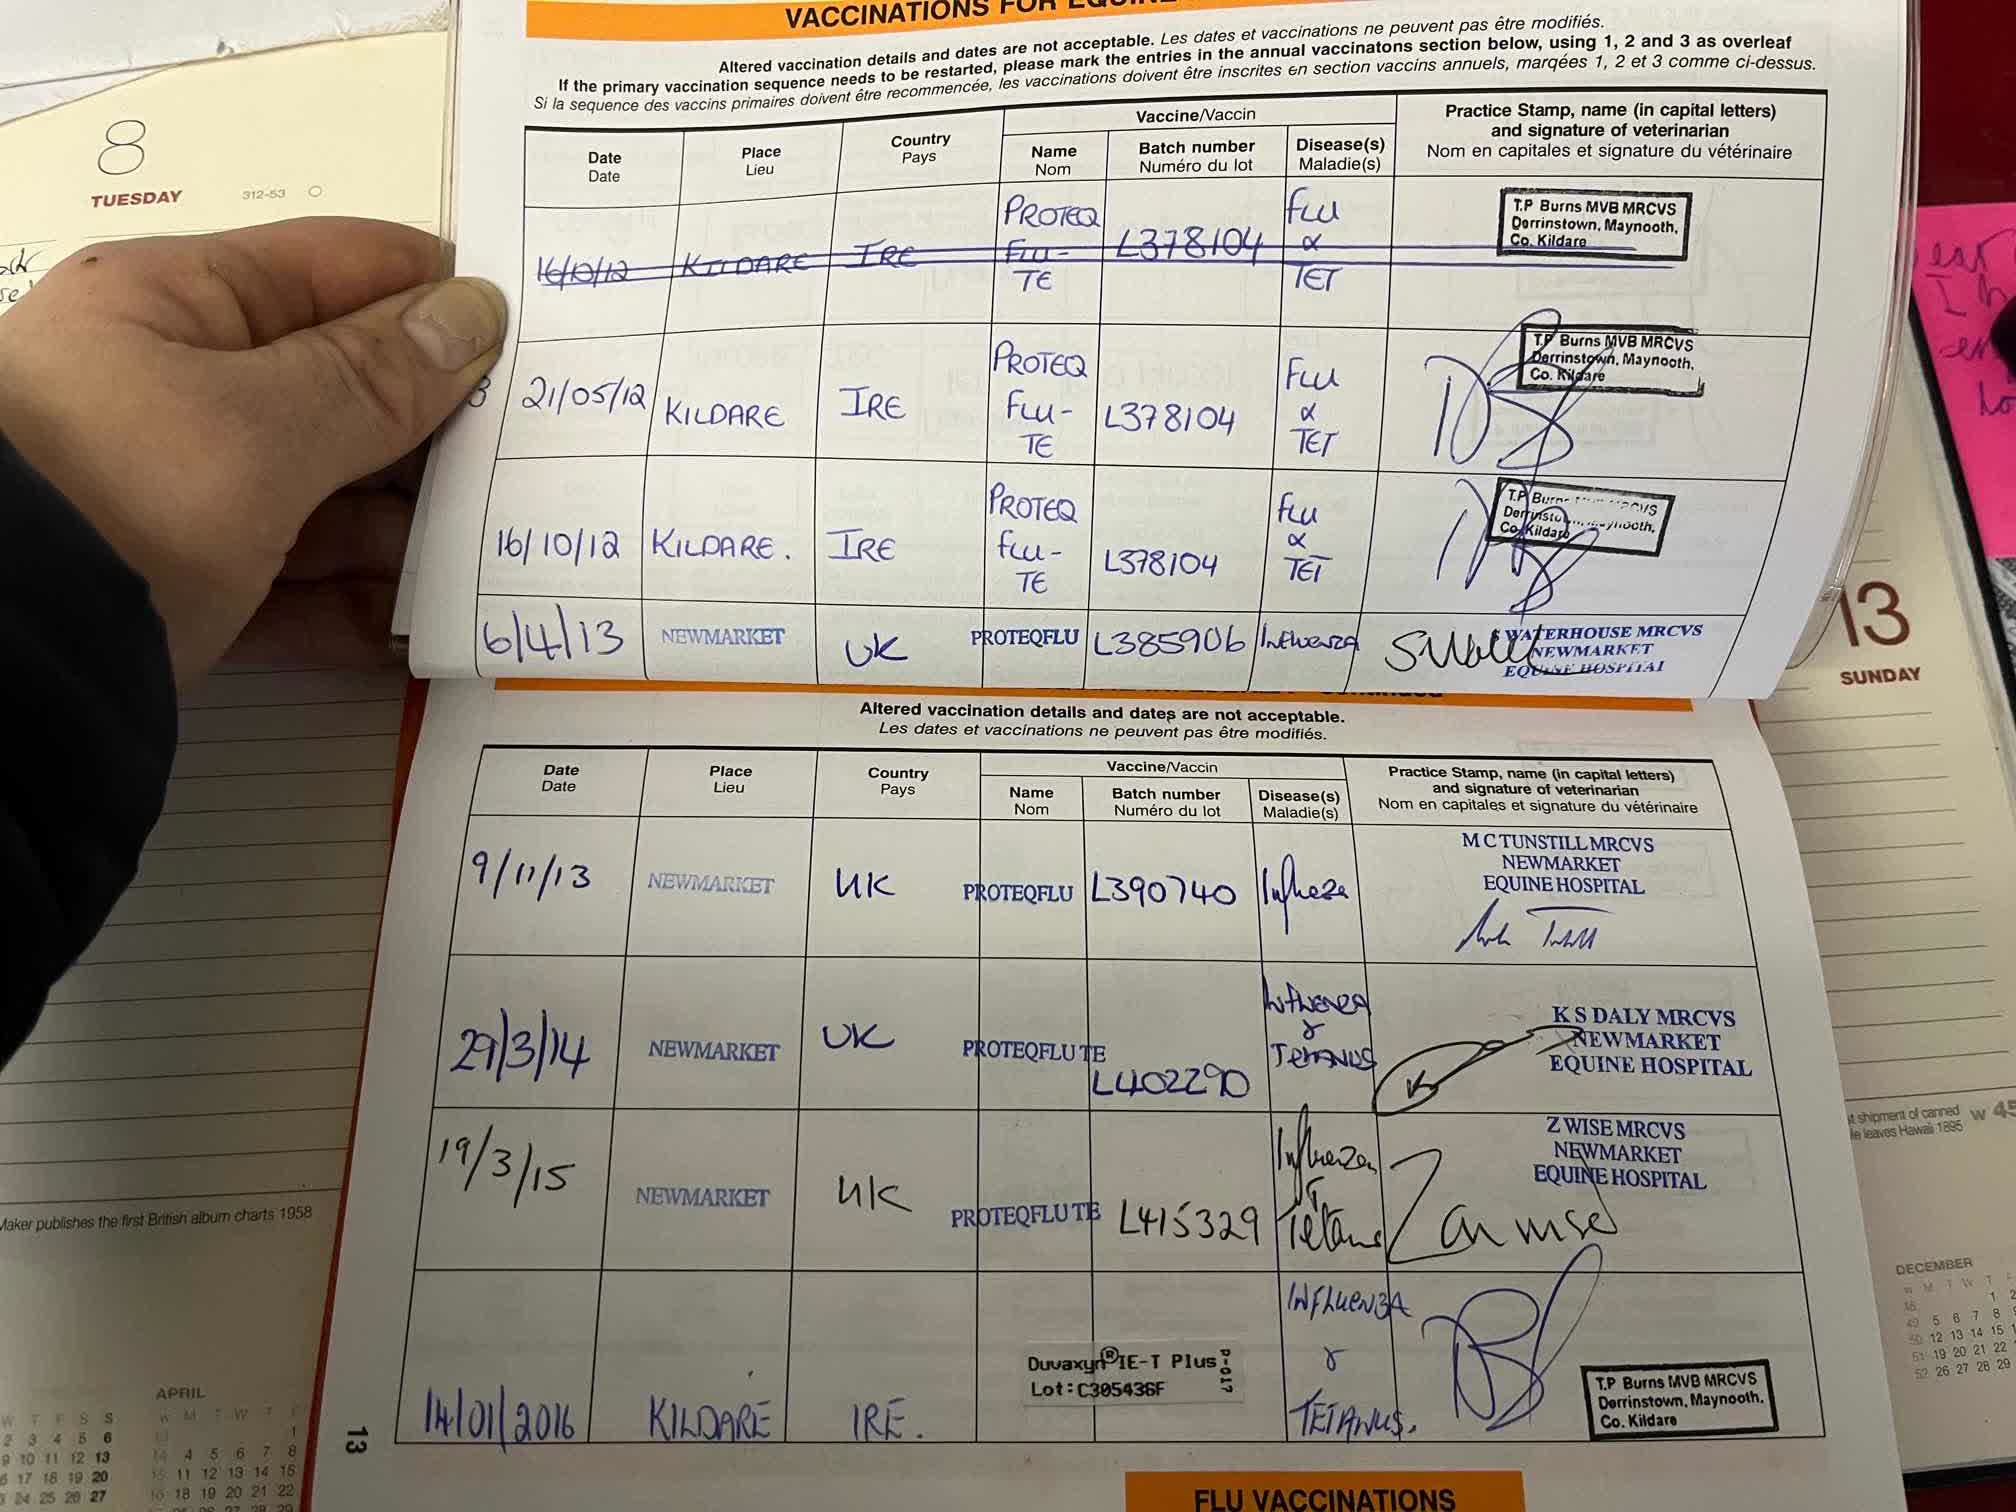 VACCINATIONS FOR EQUINE
Altered vaccination details and dates are not acceptable. Les dates et vaccinations ne peuvent pas être modifiés.
If the primary vaccination sequence needs to be restarted, please mark the entries in the annual vaccinatons section below, using 1, 2 and 3 as overleaf
Si la sequence des vaccins primaires doivent être recommencée, les vaccinations doivent être inscrites en section vaccins annuels, marqées 1, 2 et 3 comme ci-dessus.
Date
Date
Place
Lieu
Country
Pays
Vaccine/Vaccin
Name
Nom
Batch number
Numéro du lot
Disease(s)
Maladie(s)
Practice Stamp, name (in capital letters)
and signature of veterinarian
Nom en capitales et signature du vétérinaire
16/10/12 KILDARE IRE PROTEQ FLU-TE L378104 FLU & TET
T.P Burns MVB MRCVS
Derrinstown, Maynooth,
Co. Kildare
3 21/05/12 KILDARE IRE PROTEQ FLU-TE L378104 FLU & TET
T.P Burns MVB MRCVS
Derrinstown, Maynooth,
Co. Kildare
16/10/12 KILDARE. IRE PROTEQ FLU-TE L378104 FLU & TET
T.P Burns MRCVS
Derrinstown, Maynooth,
Co. Kildare
6/4/13 NEWMARKET UK PROTEQFLU L385906 INFLUENZA
S WATERHOUSE MRCVS
NEWMARKET
EQUINE HOSPITAL
Altered vaccination details and dates are not acceptable.
Les dates et vaccinations ne peuvent pas être modifiés.
Date
Date
Place
Lieu
Country
Pays
Vaccine/Vaccin
Name
Nom
Batch number
Numéro du lot
Disease(s)
Maladie(s)
Practice Stamp, name (in capital letters)
and signature of veterinarian
Nom en capitales et signature du vétérinaire
9/11/13 NEWMARKET UK PROTEQFLU L390740 Influenza
M C TUNSTILL MRCVS
NEWMARKET
EQUINE HOSPITAL
29/3/14 NEWMARKET UK PROTEQFLU TE L402290 INFLUENZA & TETANUS
K S DALY MRCVS
NEWMARKET
EQUINE HOSPITAL
19/3/15 NEWMARKET UK PROTEQFLU TE L415329 Influenza + Tetanus
Z WISE MRCVS
NEWMARKET
EQUINE HOSPITAL
14/01/2016 KILDARE IRE. Duvaxyn® IE-T Plus Lot:C305436F P-017 INFLUENZA & TETANUS.
T.P Burns MVB MRCVS
Derrinstown, Maynooth,
Co. Kildare
13
FLU VACCINATIONS
8
TUESDAY
312-53
Maker publishes the first British album charts 1958
APRIL
13
SUNDAY
shipment of canned
leaves Hawaii 1895
W 45
DECEMBER